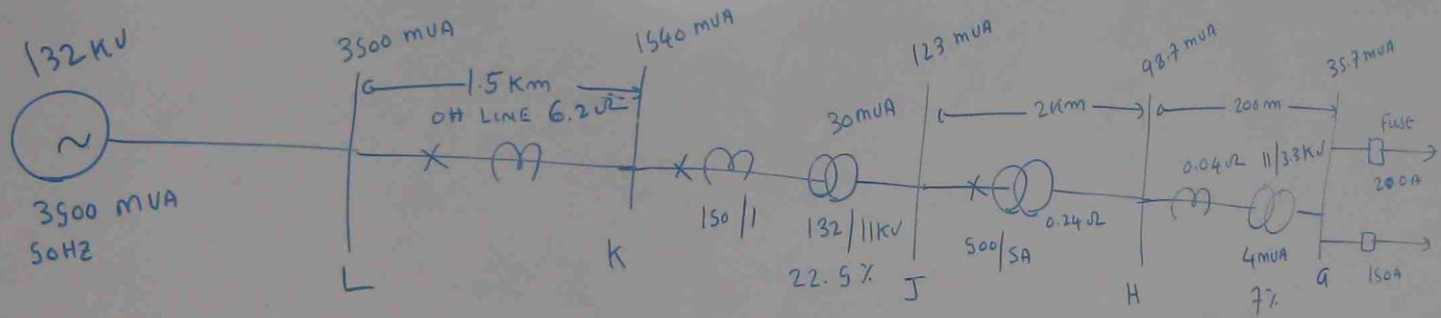 132 KV
3500 MVA
50HZ
3500 MVA
1.5 Km
OH LINE 6.2Ω
L
1540 MVA
K
150/1
30MVA
132/11KV
22.5%
123 MVA
J
2Km
500/5A
0.24Ω
98.7 MVA
H
200m
0.04Ω 11/3.3KV
4MVA
7%
35.7 MVA
G
Fuse
200A
150A